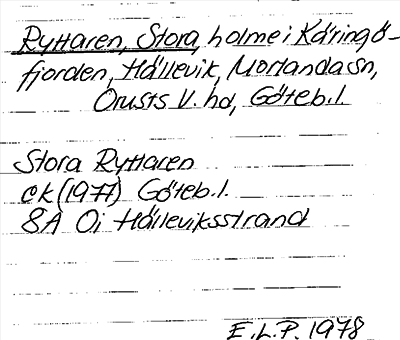 Ryttaren, Stora, holme i Käringö-
fjorden, Hällevik, Morlanda sn,
Orusts V. hd, Göteb.l.
Stora Ryttaren
ek (1977) Göteb.l.
8A 0i Hälleviksstrand
E.L.P. 1978